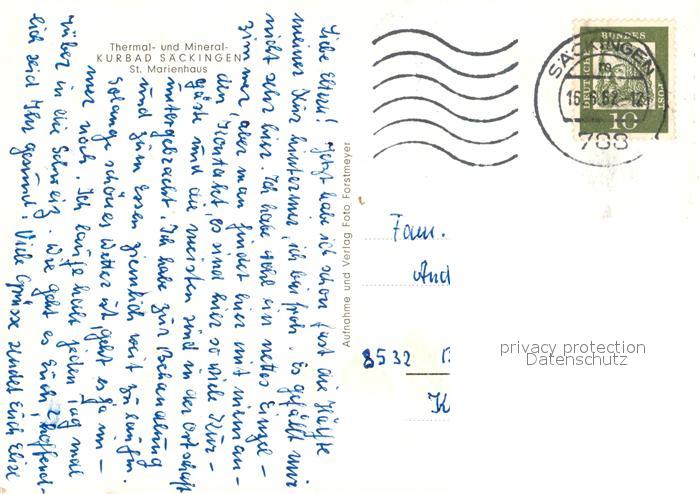 Thermal- und Mineral-
KURBAD SÄCKINGEN
St. Marienhaus
Liebe Eltern! Jetzt habe ich schon fast die Hälfte
meiner Kur hinter mir, ich bin froh. Es gefällt mir
nicht sehr hier. Ich habe wohl ein nettes Einzel-
zimmer, aber man findet hier mit nieman-
den Kontakt, es sind hier so viele Kur-
gäste und die meisten sind in der Ortschaft
untergebracht. Ich habe zur Behandlung
und zum Essen ziemlich weit zu laufen.
Solange schönes Wetter ist, geht es ja im-
mer noch. Ich laufe halt jeden Tag mal
rüber in die Schweiz. Wie geht es Euch, hoffent-
lich seid Ihr gesund! Viele Grüsse sendet Euch Elise
Aufnahme und Verlag Foto Forstmeyer
DEUTSCHE BUNDESPOST
10
SÄCKINGEN
15.6.62-12
788
Fam.
And
8532 B
K
privacy protection
Datenschutz